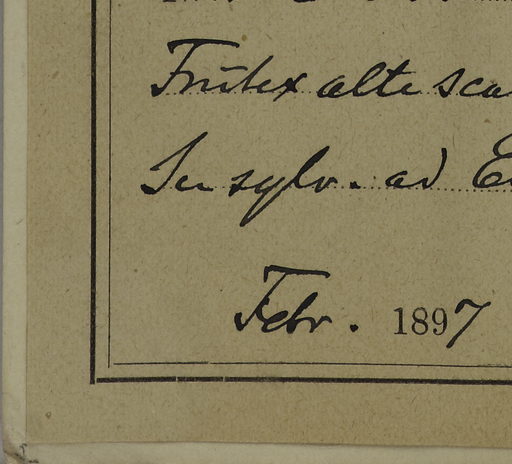 Frutex alte sca
In sylv. ad
Febr. 1897